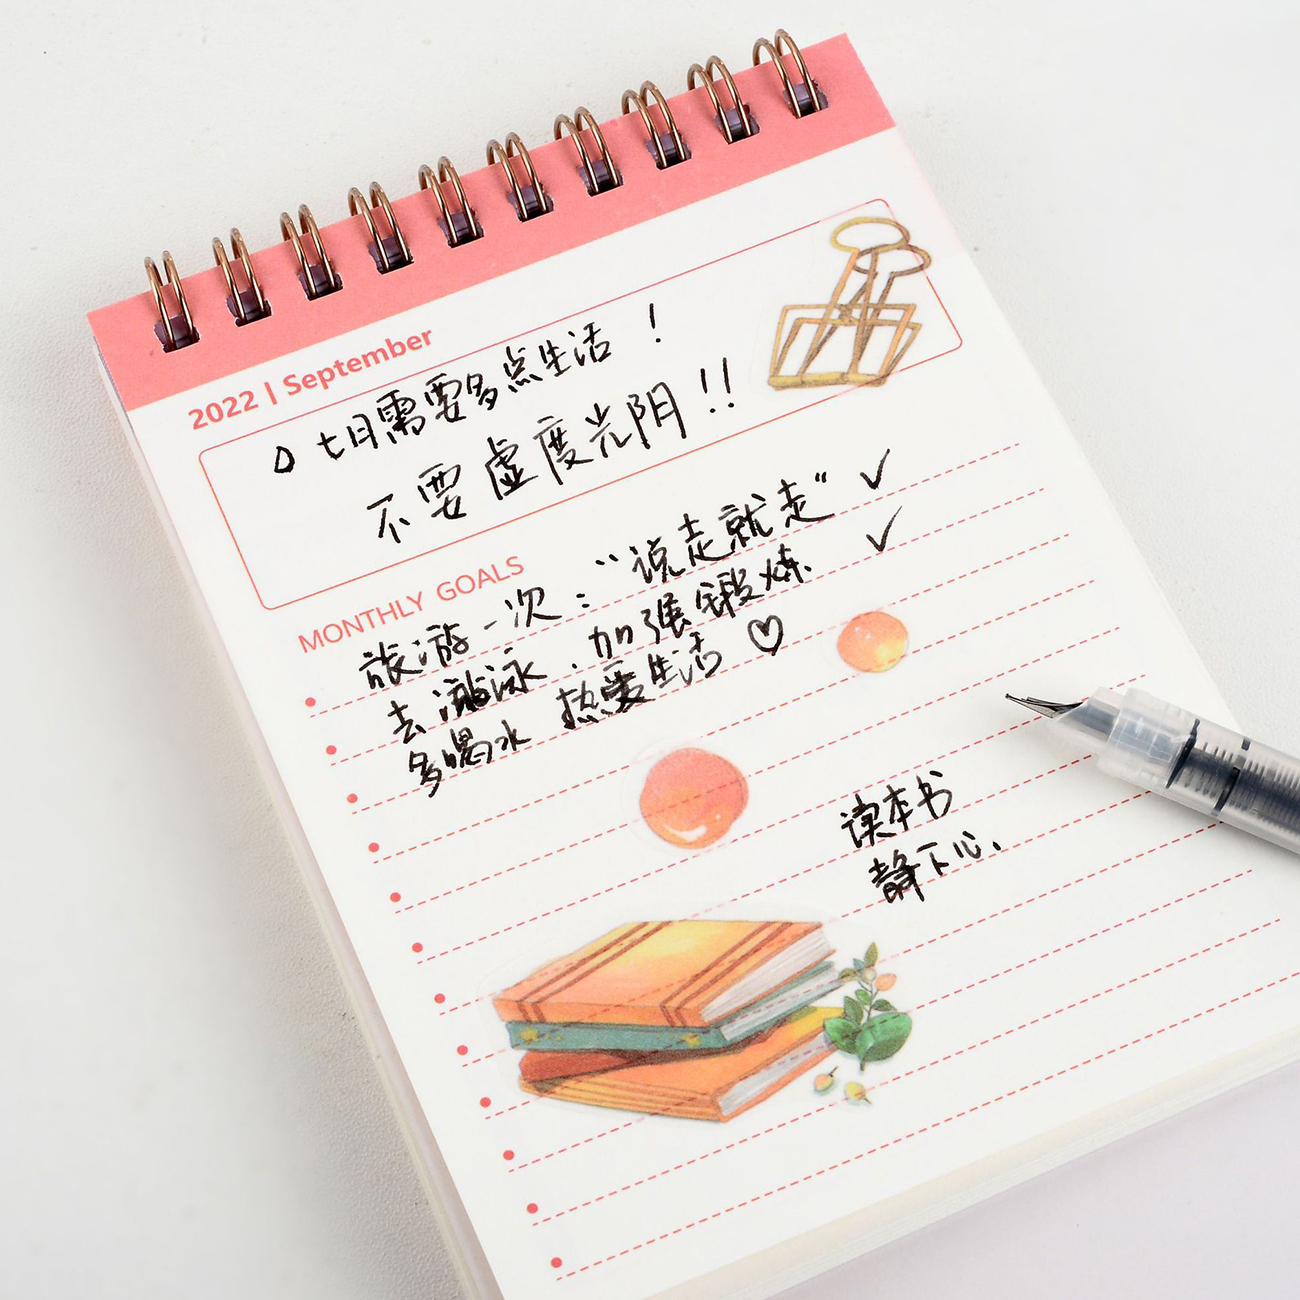 2022 | September
七月需要多点生活！
不要虚度光阴！！
MONTHLY GOALS
旅游一次："说走就走" ✓
去游泳.加强锻炼. ✓
多喝水 热爱生活 ♡
读本书
静下心.